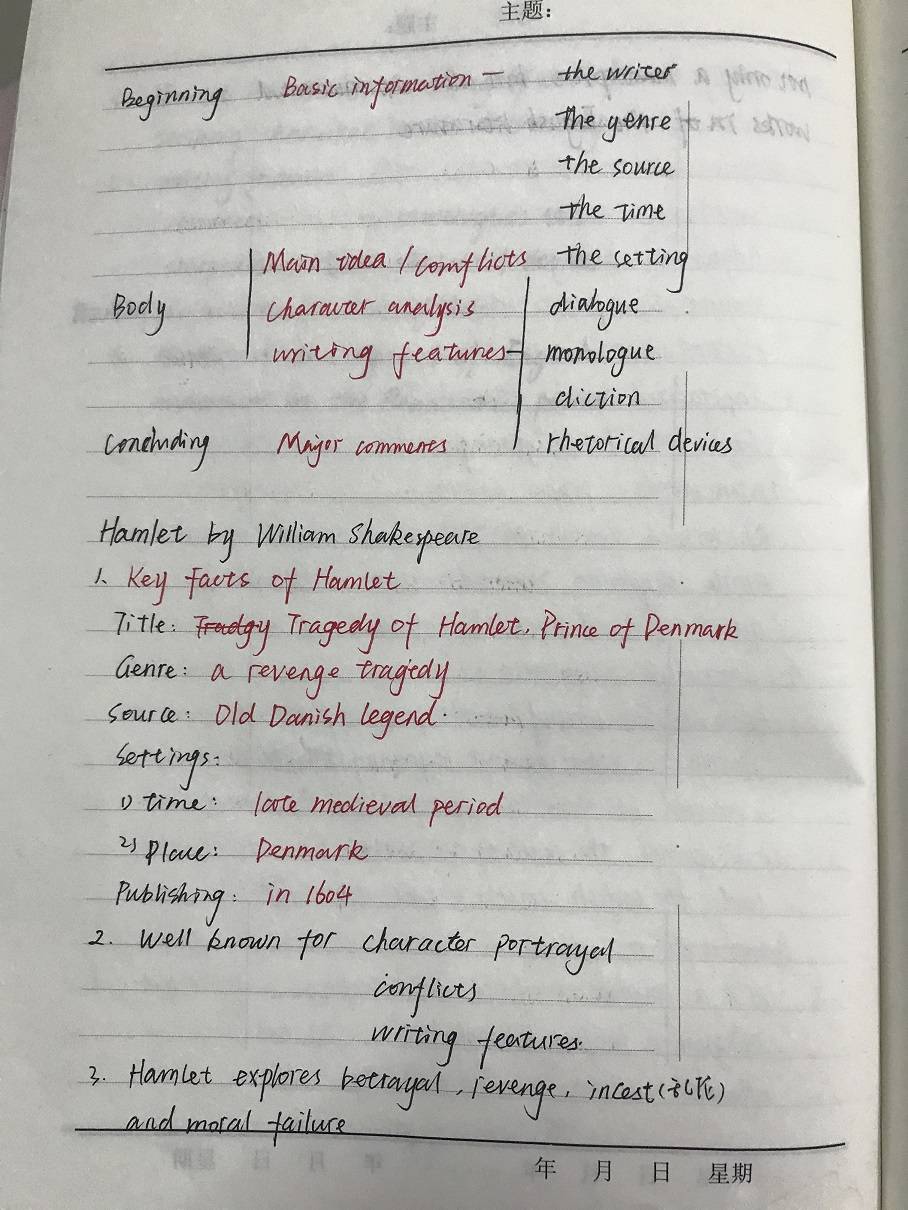 主题:
Beginning Basic information — the writer
the genre
the source
the time
Main idea / conflicts the setting
Body character analysis dialogue
writing features monologue
diction
Concluding Major comments rhetorical devices
Hamlet by William Shakespeare
1. Key facts of Hamlet
Title: Tradgy Tragedy of Hamlet, Prince of Denmark
Genre: a revenge tragedy
Source: Old Danish legend.
Settings:
1) time: late medieval period
2) Place: Denmark
Publishing: in 1604
2. Well known for character portrayal
conflicts
writing features.
3. Hamlet explores betrayal, revenge, incest (乱伦)
and moral failure
年 月 日 星期